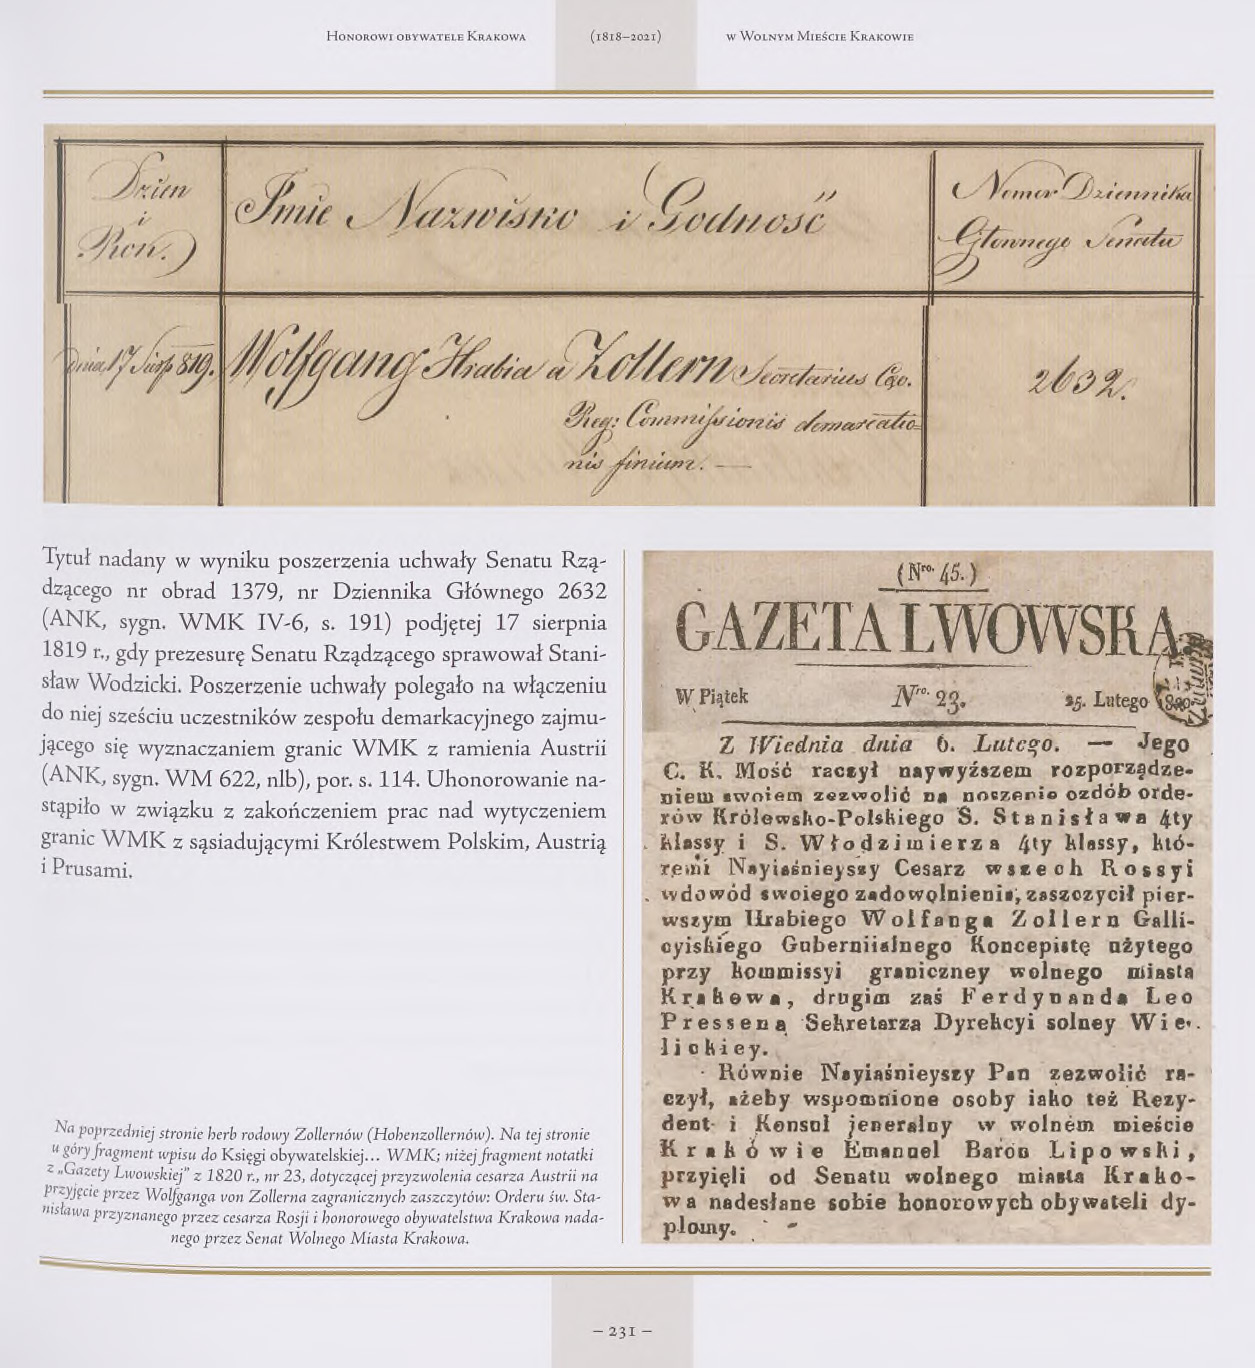 Honorowi obywatele Krakowa (1818–2021) w Wolnym Mieście Krakowie
Dzien
i
Rok.
Jmie Nazwisko i Godność
Nomor Dziennika
Głownego Senatu
Dnia 17 Sierp 819.
Wolfgang Hrabia a Zollern Secretarius Cæ.
Reg: Commissionis demarcatio=
nis finium. —
2632.
Tytuł nadany w wyniku poszerzenia uchwały Senatu Rzą-
dzącego nr obrad 1379, nr Dziennika Głównego 2632
(ANK, sygn. WMK IV-6, s. 191) podjętej 17 sierpnia
1819 r., gdy prezesurę Senatu Rządzącego sprawował Stani-
sław Wodzicki. Poszerzenie uchwały polegało na włączeniu
do niej sześciu uczestników zespołu demarkacyjnego zajmu-
jącego się wyznaczaniem granic WMK z ramienia Austrii
(ANK, sygn. WM 622, nlb), por. s. 114. Uhonorowanie na-
stąpiło w związku z zakończeniem prac nad wytyczeniem
granic WMK z sąsiadującymi Królestwem Polskim, Austrią
i Prusami.
Na poprzedniej stronie herb rodowy Zollernów (Hohenzollernów). Na tej stronie
u góry fragment wpisu do Księgi obywatelskiej... WMK; niżej fragment notatki
z „Gazety Lwowskiej” z 1820 r., nr 23, dotyczącej przyzwolenia cesarza Austrii na
przyjęcie przez Wolfganga von Zollerna zagranicznych zaszczytów: Orderu św. Sta-
nisława przyznanego przez cesarza Rosji i honorowego obywatelstwa Krakowa nada-
nego przez Senat Wolnego Miasta Krakowa.
(Nro. 45.)
GAZETA LWOWSKA
W Piątek Nro. 23. 25. Lutego
Z Wiednia dnia 6. Lutego. — Jego
C. K. Mość raczył naywyższem rozporządze-
niem swoiem zezwolić na noszenie ozdób orde-
rów Królewsko-Polskiego S. Stanisława 4ty
klassy i S. Włodzimierza 4ty klassy, któ-
remi Nayiaśnieyszy Cesarz wszech Rossyi
wdowód swoiego zadowolnienia, zaszczycił pier-
wszym Hrabiego Wolfanga Zollern Galli-
cyiskiego Guberniialnego Koncepistę użytego
przy kommissyi graniczney wolnego miasta
Krakowa, drugim zaś Ferdynanda Leo
Pressena Sekretarza Dyrekcyi solney Wie-
lickiey.
Równie Nayiaśnieyszy Pan zezwolić ra-
czył, ażeby wspomnione osoby iako też Rezy-
dent i Konsul jeneralny w wolném mieście
Krakówie Emanuel Baron Lipowski,
przyięli od Senatu wolnego miasta Krako-
wa nadesłane sobie honorowych obywateli dy-
plomy.
– 231 –